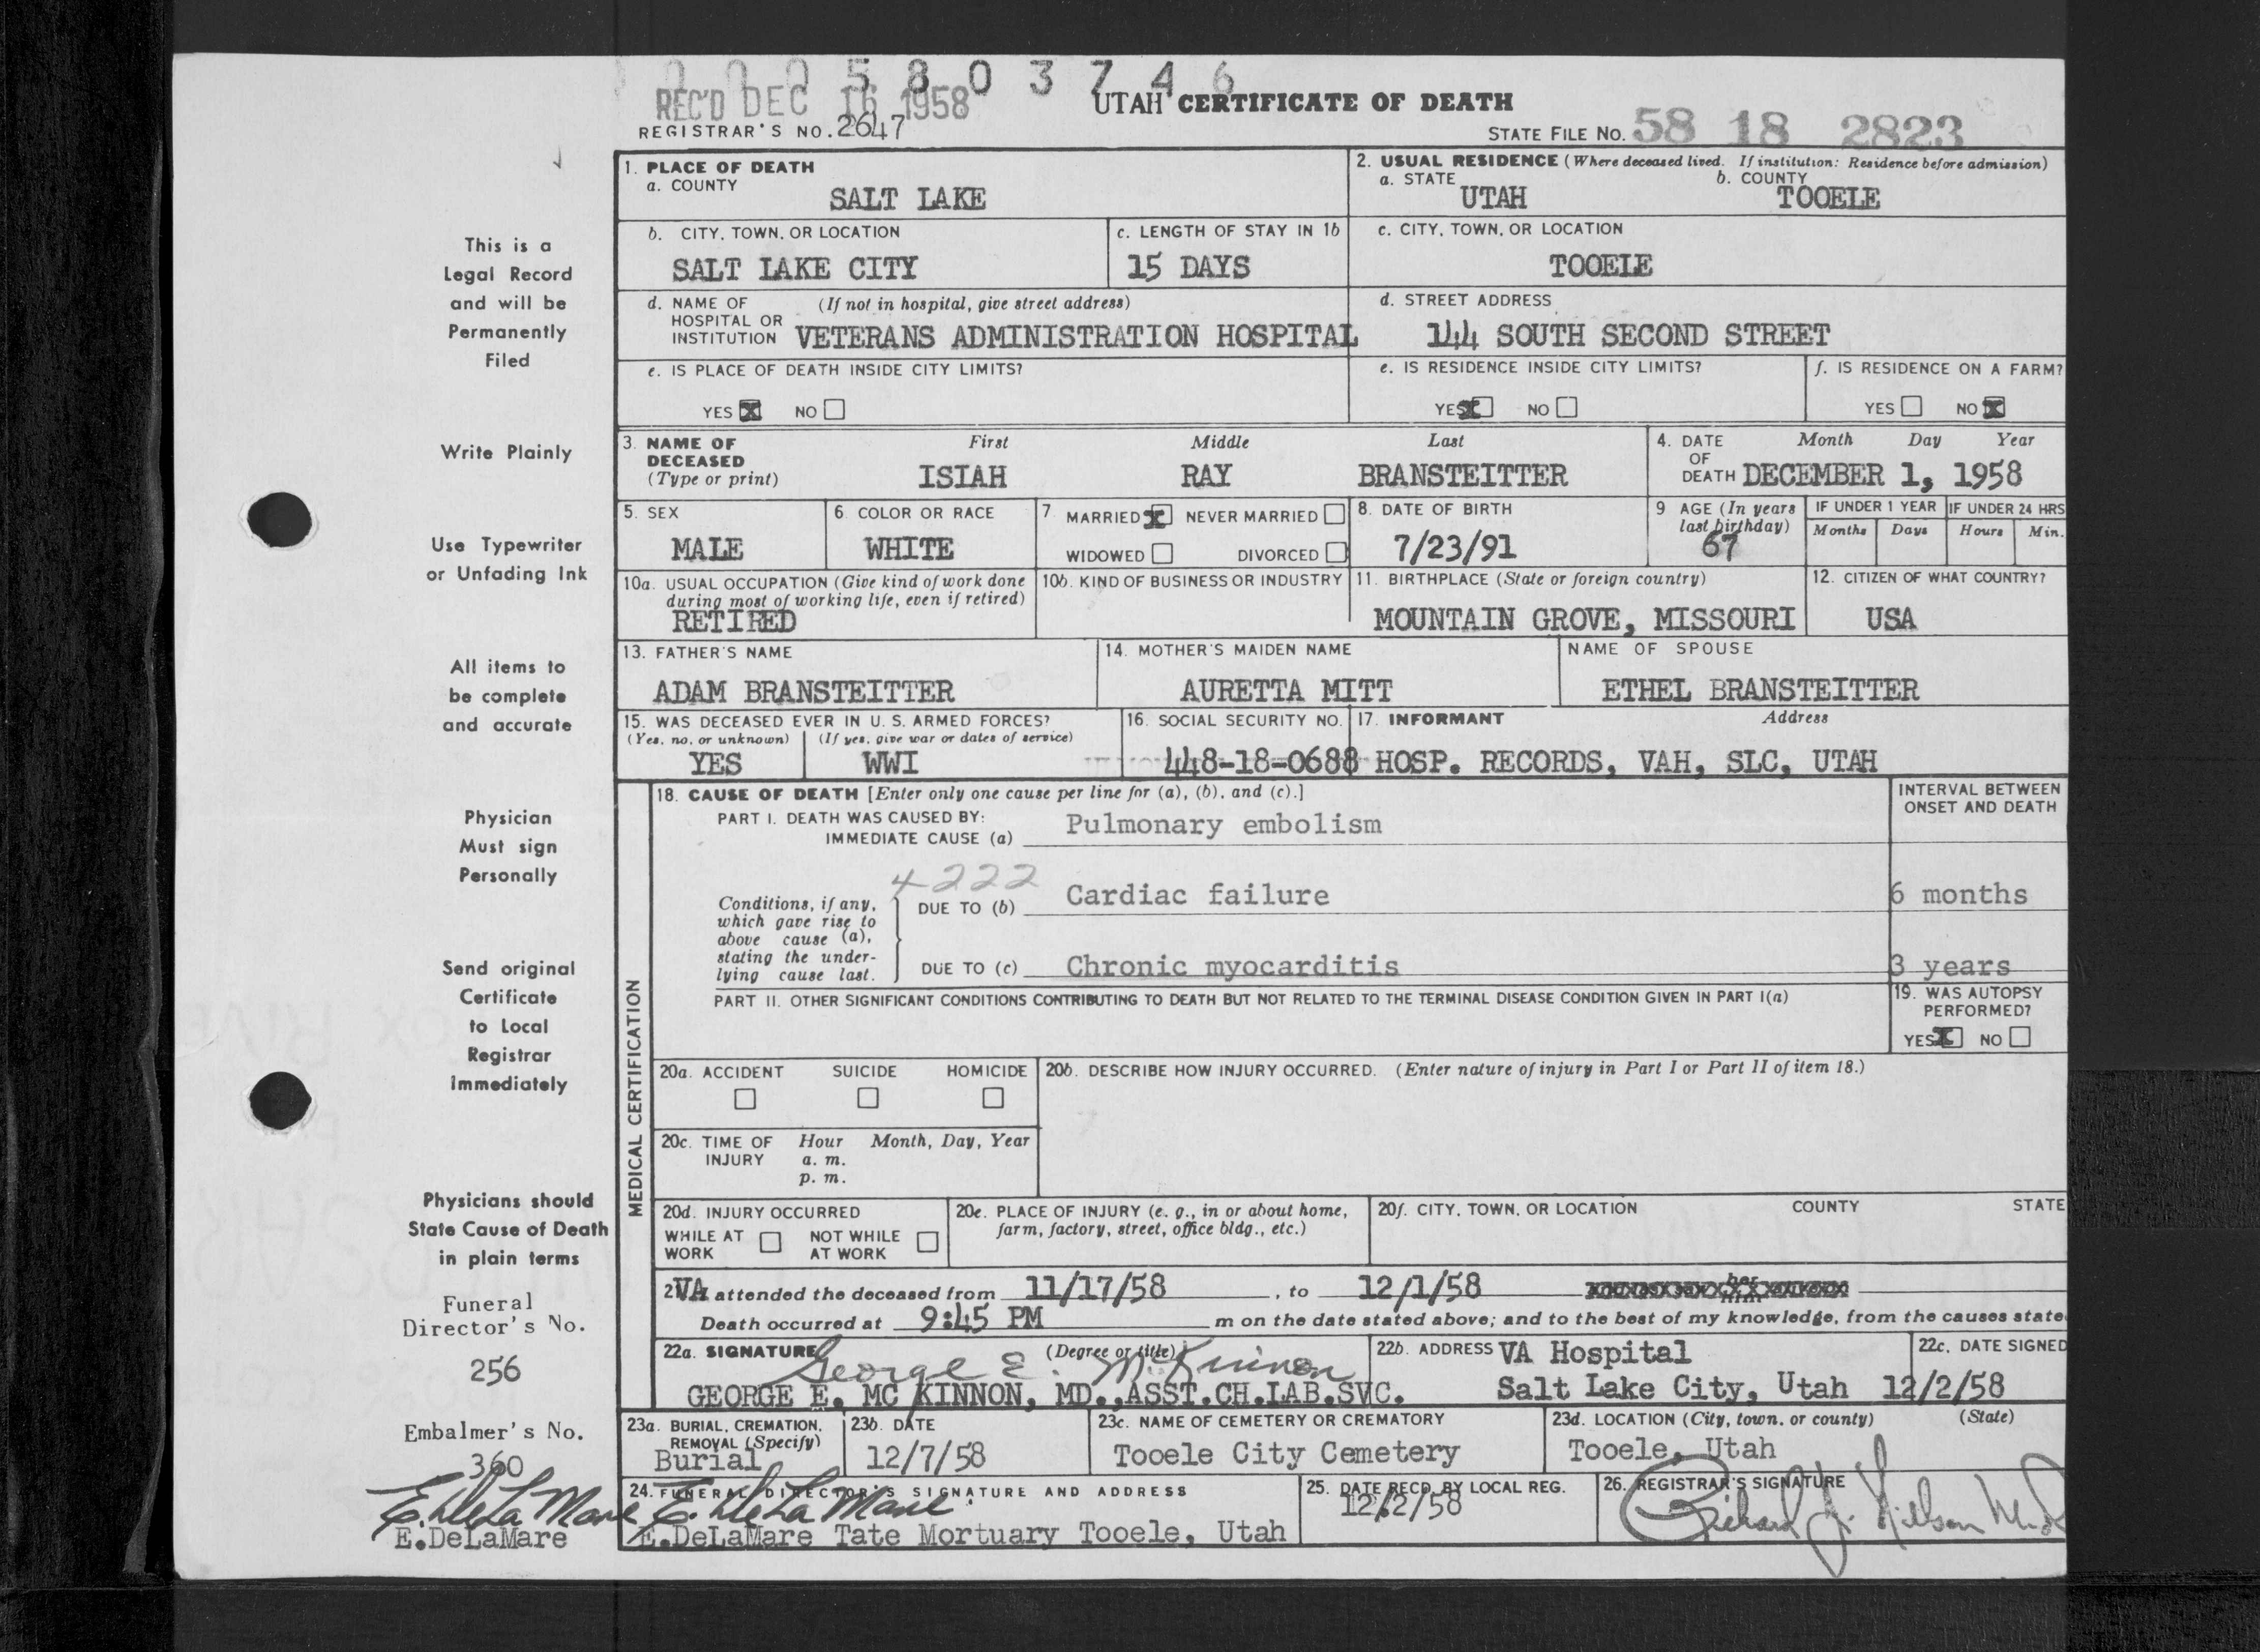 0 0 0 5 8 0 3 7 4 6
REC'D DEC 16 1958
UTAH CERTIFICATE OF DEATH
REGISTRAR'S NO. 2647
STATE FILE No. 58 18 2823
1. PLACE OF DEATH
a. COUNTY
SALT LAKE
2. USUAL RESIDENCE (Where deceased lived. If institution: Residence before admission)
a. STATE b. COUNTY
UTAH TOOELE
b. CITY, TOWN, OR LOCATION
SALT LAKE CITY
c. LENGTH OF STAY IN 1b
15 DAYS
c. CITY, TOWN, OR LOCATION
TOOELE
d. NAME OF HOSPITAL OR INSTITUTION (If not in hospital, give street address)
VETERANS ADMINISTRATION HOSPITAL
d. STREET ADDRESS
144 SOUTH SECOND STREET
e. IS PLACE OF DEATH INSIDE CITY LIMITS?
YES X NO
e. IS RESIDENCE INSIDE CITY LIMITS?
YES X NO
f. IS RESIDENCE ON A FARM?
YES NO X
3. NAME OF DECEASED (Type or print)
First Middle Last
ISIAH RAY BRANSTEITTER
4. DATE OF DEATH
Month Day Year
DECEMBER 1, 1958
5. SEX
MALE
6. COLOR OR RACE
WHITE
7 MARRIED X NEVER MARRIED
WIDOWED DIVORCED
8. DATE OF BIRTH
7/23/91
9 AGE (In years last birthday)
67
IF UNDER 1 YEAR
Months Days
IF UNDER 24 HRS
Hours Min.
10a. USUAL OCCUPATION (Give kind of work done during most of working life, even if retired)
RETIRED
10b. KIND OF BUSINESS OR INDUSTRY
11. BIRTHPLACE (State or foreign country)
MOUNTAIN GROVE, MISSOURI
12. CITIZEN OF WHAT COUNTRY?
USA
13. FATHER'S NAME
ADAM BRANSTEITTER
14. MOTHER'S MAIDEN NAME
AURETTA MITT
NAME OF SPOUSE
ETHEL BRANSTEITTER
15. WAS DECEASED EVER IN U. S. ARMED FORCES?
(Yes, no, or unknown) (If yes, give war or dates of service)
YES WWI
16. SOCIAL SECURITY NO.
448-18-0688
17. INFORMANT Address
HOSP. RECORDS, VAH, SLC, UTAH
MEDICAL CERTIFICATION
18. CAUSE OF DEATH [Enter only one cause per line for (a), (b), and (c).]
INTERVAL BETWEEN ONSET AND DEATH
PART I. DEATH WAS CAUSED BY:
IMMEDIATE CAUSE (a) Pulmonary embolism
4222
Conditions, if any, which gave rise to above cause (a), stating the underlying cause last.
DUE TO (b) Cardiac failure 6 months
DUE TO (c) Chronic myocarditis 3 years
PART II. OTHER SIGNIFICANT CONDITIONS CONTRIBUTING TO DEATH BUT NOT RELATED TO THE TERMINAL DISEASE CONDITION GIVEN IN PART I(a)
19. WAS AUTOPSY PERFORMED?
YES X NO
20a. ACCIDENT SUICIDE HOMICIDE
20b. DESCRIBE HOW INJURY OCCURRED. (Enter nature of injury in Part I or Part II of item 18.)
20c. TIME OF INJURY Hour Month, Day, Year
a. m.
p. m.
20d. INJURY OCCURRED
WHILE AT WORK NOT WHILE AT WORK
20e. PLACE OF INJURY (e. g., in or about home, farm, factory, street, office bldg., etc.)
20f. CITY, TOWN, OR LOCATION COUNTY STATE
2VA attended the deceased from 11/17/58, to 12/1/58
Death occurred at 9:45 PM m on the date stated above; and to the best of my knowledge, from the causes state
22a. SIGNATURE (Degree or title)
George E. McKinnon
GEORGE E. MC KINNON, MD.,ASST.CH.LAB.SVC.
22b. ADDRESS VA Hospital
Salt Lake City, Utah
22c. DATE SIGNED
12/2/58
23a. BURIAL, CREMATION, REMOVAL (Specify)
Burial
23b. DATE
12/7/58
23c. NAME OF CEMETERY OR CREMATORY
Tooele City Cemetery
23d. LOCATION (City, town, or county) (State)
Tooele, Utah
24. FUNERAL DIRECTOR'S SIGNATURE AND ADDRESS
E. DeLaMare
E.DeLaMare Tate Mortuary Tooele, Utah
25. DATE RECD. BY LOCAL REG.
12/2/58
26. REGISTRAR'S SIGNATURE
This is a
Legal Record
and will be
Permanently
Filed
Write Plainly
Use Typewriter
or Unfading Ink
All items to
be complete
and accurate
Physician
Must sign
Personally
Send original
Certificate
to Local
Registrar
immediately
Physicians should
State Cause of Death
in plain terms
Funeral
Director's No.
256
Embalmer's No.
360
E. DeLaMare
E.DeLaMare